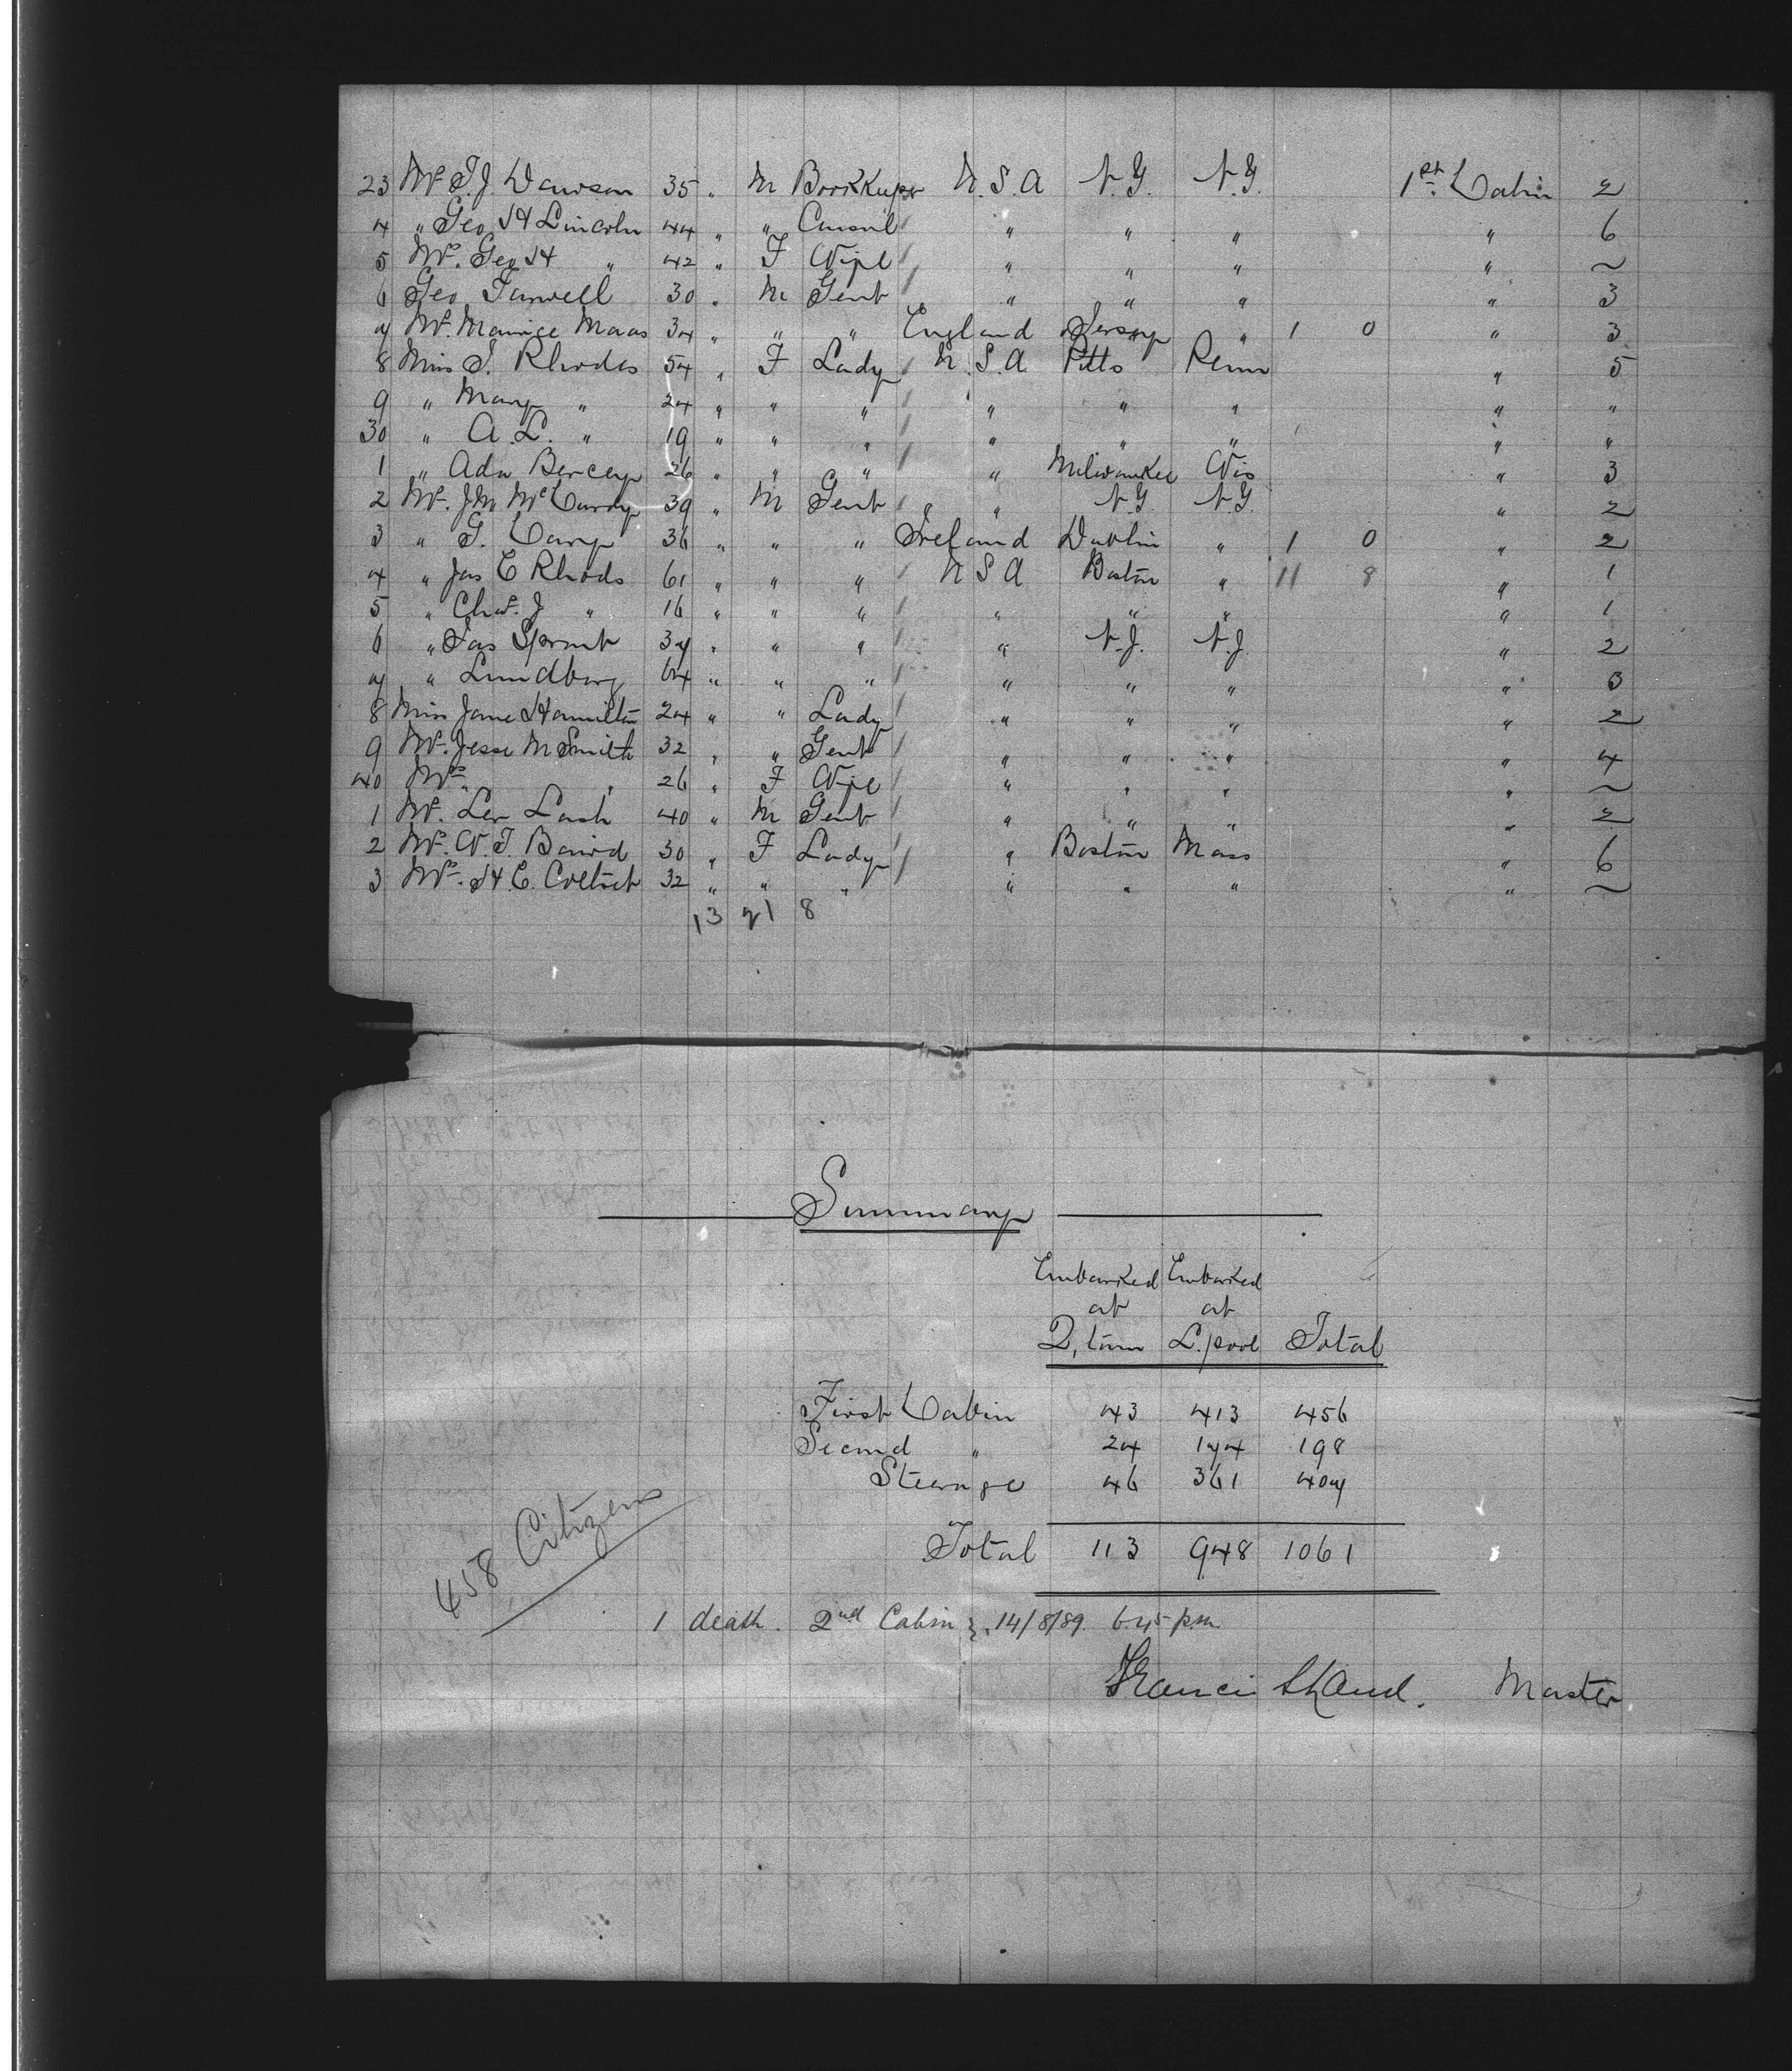 23 Mr. T. J. Dawson 35 " M Bookkeeper U.S.A N.Y. N.Y. 1st Cabin 2
4 " Geo H Lincoln 44 " " Consul " " " " 6
5 Mrs. Geo H " 42 " F Wife " " " " ~
6 Geo Farwell 30 " M Gent " " " " 3
7 Mr. Maurice Maas 34 " " " England Jersey " 1 0 " 3
8 Miss S. Rhodes 54 " F Lady U.S.A Pitts Penn " 5
9 " Mary " 24 " " " " " " " "
30 " A. L. " 19 " " " " " " " "
1 " Ada 26 " " " " Milwaukee Wis " 3
2 Mr. J M McCurdy 39 " M Gent " N.Y. N.Y. " 2
3 " G. Carey 36 " " " Ireland Dublin " 1 0 " 2
4 " Jas C Rhods 61 " " " U S A Boston " 11 8 " 1
5 " Chas. J " 16 " " " " " " " 1
6 " Jas Sprunt 37 " " " " N.J. N.J. " 2
7 " Lundborg 64 " " " " " " " 3
8 Miss Jane Hamilton 24 " " Lady " " " " 2
9 Mr. Jesse M Smith 32 " " Gent " " " " 4
40 Mrs " " 26 " F Wife " " " " ~
1 Mr. Lee Lash 40 " M Gent " " " " 2
2 Mrs. W. T. Baird 30 " F Lady " Boston Mass " 6
3 Mrs. H. C. 32 " " " " " " " ~
13 21 8
Summary
Embarked Embarked
at at
Q,town L.pool Total
First Cabin 43 413 456
Second " 24 174 198
Steerage 46 361 407
Total 113 948 1061
458 Citizens
1 death. 2nd Cabin }. 14/8/89. 6.45 p.m.
Francis Master